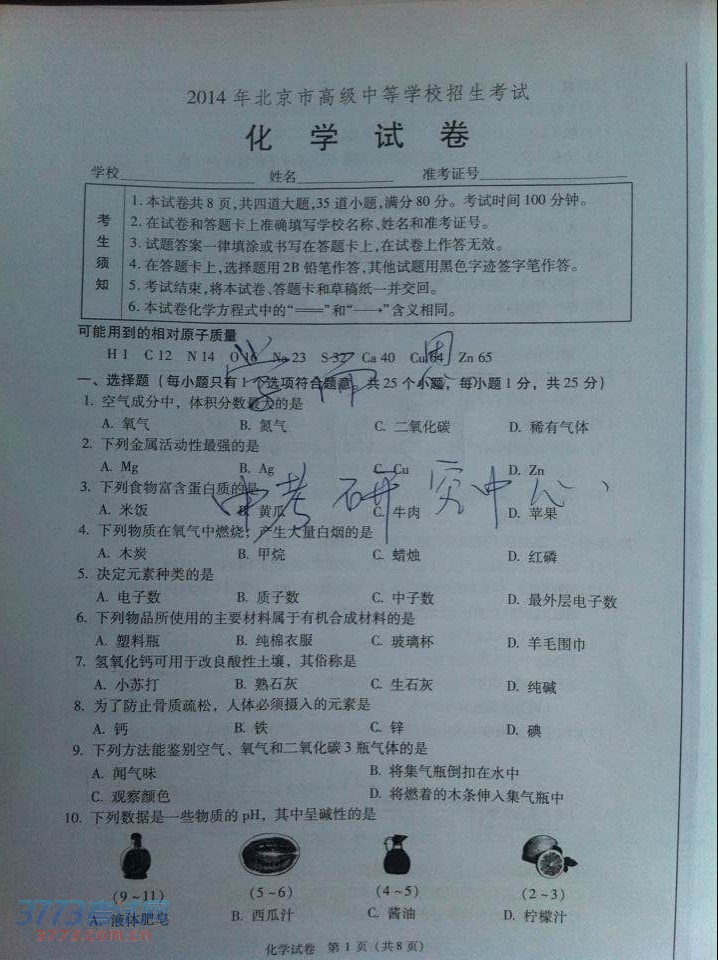 2014年北京市高级中等学校招生考试
化 学 试 卷
学校 姓名 准考证号
考生须知
1.本试卷共8页,共四道大题,35道小题,满分80分。考试时间100分钟。
2.在试卷和答题卡上准确填写学校名称、姓名和准考证号。
3.试题答案一律填涂或书写在答题卡上,在试卷上作答无效。
4.在答题卡上,选择题用2B铅笔作答,其他试题用黑色字迹签字笔作答。
5.考试结束,将本试卷、答题卡和草稿纸一并交回。
6.本试卷化学方程式中的“══”和“—→”含义相同。
可能用到的相对原子质量
H 1 C 12 N 14 O 16 Na 23 S 32 Ca 40 Cu 64 Zn 65
学而思
一、选择题(每小题只有1个选项符合题意。共25个小题,每小题1分,共25分)
1. 空气成分中,体积分数最大的是
A. 氧气 B. 氮气 C. 二氧化碳 D. 稀有气体
2. 下列金属活动性最强的是
A. Mg B. Ag C. Cu D. Zn
3. 下列食物富含蛋白质的是
中考研究中心、
A. 米饭 B. 黄瓜 C. 牛肉 D. 苹果
4. 下列物质在氧气中燃烧,产生大量白烟的是
A. 木炭 B. 甲烷 C. 蜡烛 D. 红磷
5. 决定元素种类的是
A. 电子数 B. 质子数 C. 中子数 D. 最外层电子数
6. 下列物品所使用的主要材料属于有机合成材料的是
A. 塑料瓶 B. 纯棉衣服 C. 玻璃杯 D. 羊毛围巾
7. 氢氧化钙可用于改良酸性土壤,其俗称是
A. 小苏打 B. 熟石灰 C. 生石灰 D. 纯碱
8. 为了防止骨质疏松,人体必须摄入的元素是
A. 钙 B. 铁 C. 锌 D. 碘
9. 下列方法能鉴别空气、氧气和二氧化碳3瓶气体的是
A. 闻气味 B. 将集气瓶倒扣在水中
C. 观察颜色 D. 将燃着的木条伸入集气瓶中
10. 下列数据是一些物质的pH,其中呈碱性的是
(9~11) (5~6) (4~5) (2~3)
A. 液体肥皂 B. 西瓜汁 C. 酱油 D. 柠檬汁
化学试卷 第1页(共8页)